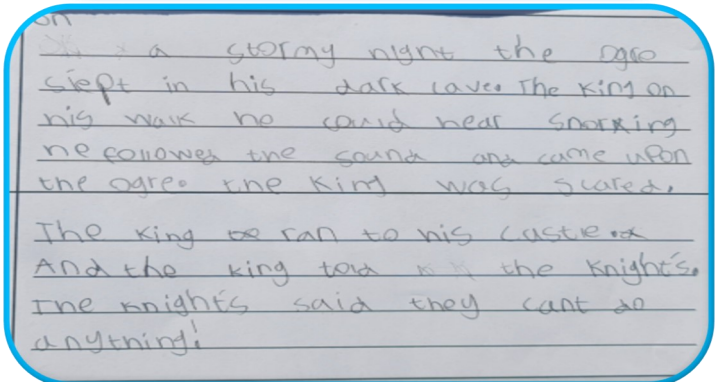 on
a stormy night the ogre
slept in his dark cave. The King on
his walk he could hear snorking
he followed the sound and came upon
the ogre. the King was scared.
The king ran to his castle.
And the king told the Knight's.
The Knight's said they cant do
anything!